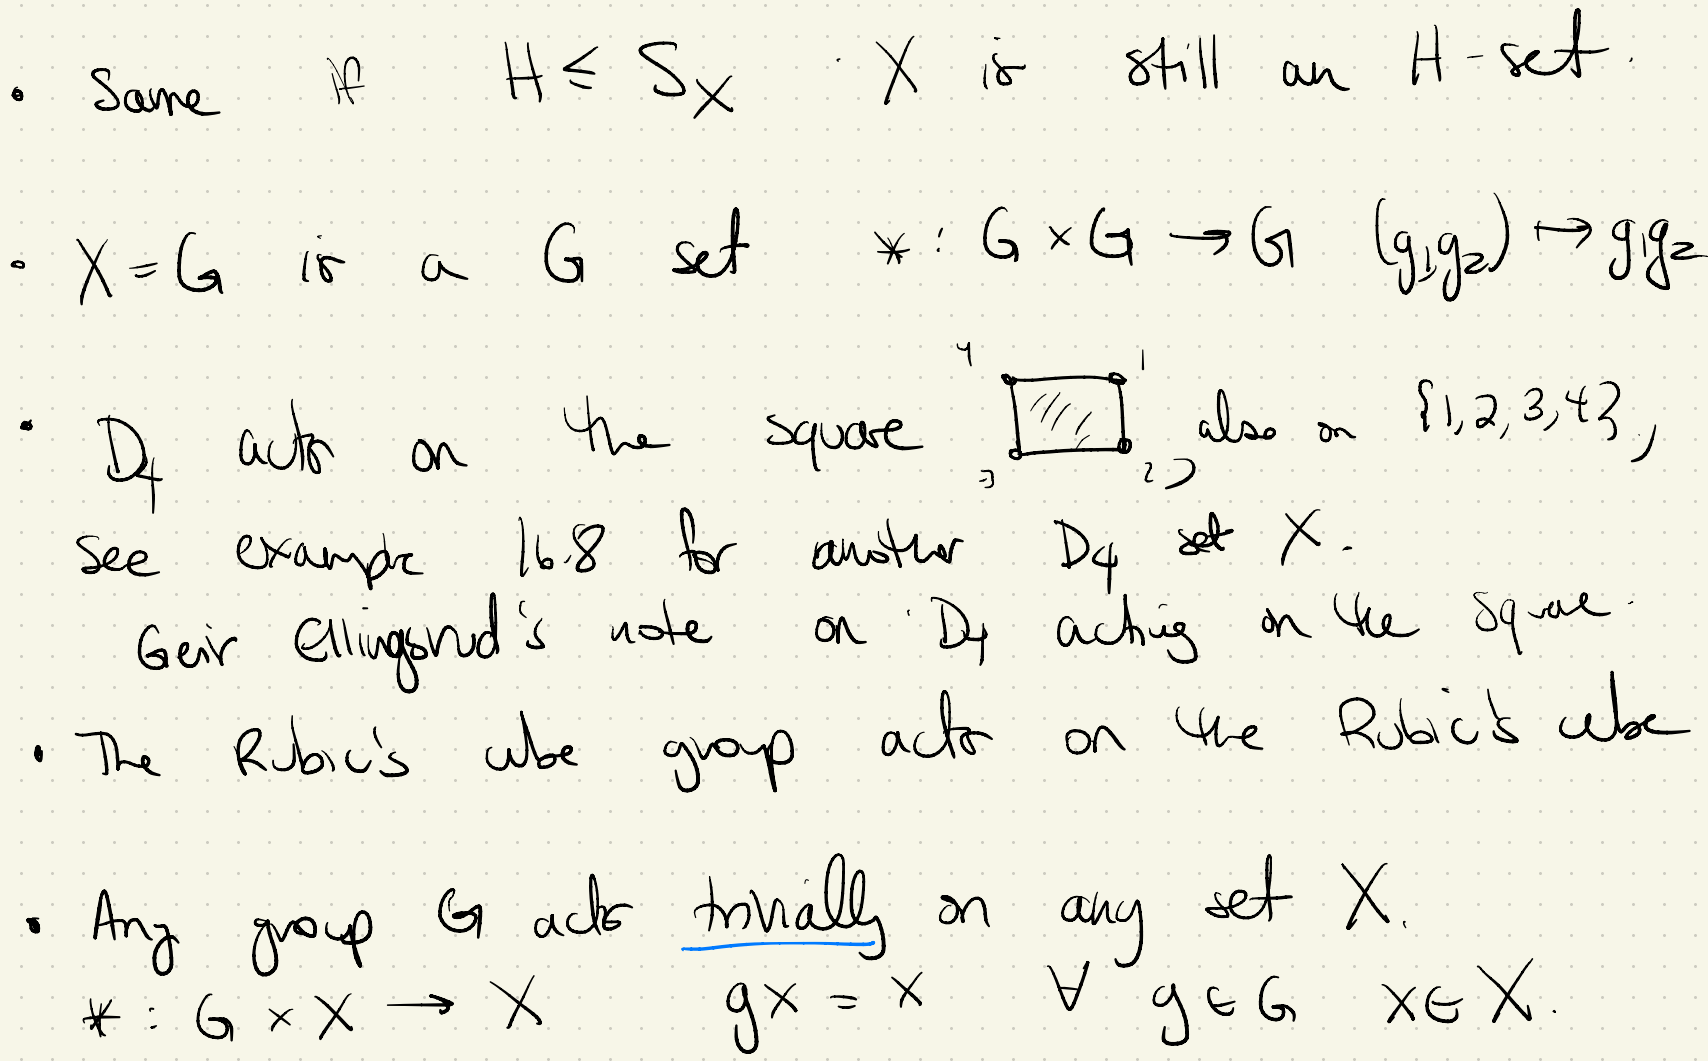 • Same if H ≤ S_X . X is still an H-set.
• X = G is a G set * : G × G → G (g₁,g₂) ↦ g₁g₂
4 1
• D₄ acts on the square , also on {1,2,3,4},
3 2
See example 16.8 for another D₄ set X.
Geir Ellingsrud's note on D₄ acting on the square.
• The Rubic's cube group acts on the Rubic's cube
• Any group G acts trivially on any set X.
* : G × X → X gx = x ∀ g ∈ G x ∈ X.